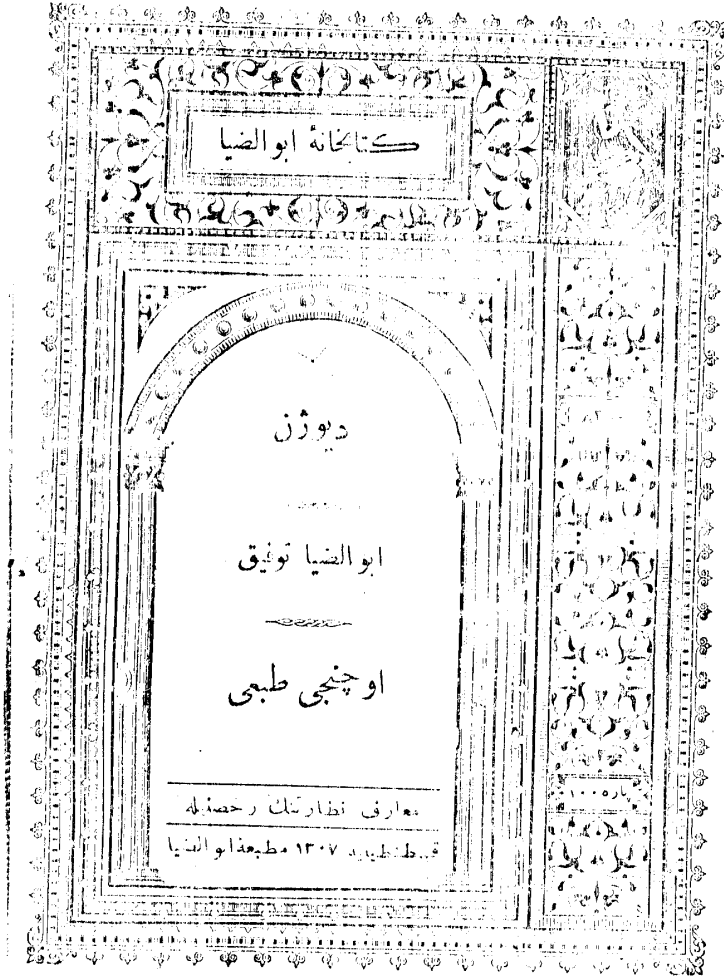 كتابخانهٔ ابو الضيا
ديوژن
ابو الضيا توفيق
اوچنجى طبعى
معارف نظارتنك رخصتيله
قسطنطينيه ١٣٠٧ مطبعهٔ ابو الضيا
پاره ١٠٠